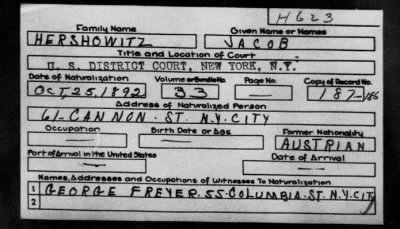 H623
Family Name Given Name or Names
HERSHOWITZ JACOB
Title and Location of Court
U. S. DISTRICT COURT, NEW YORK, N.Y.
Date of Naturalization Volume or Bundle No. Page No. Copy of Record No.
OCT, 25, 1892 33 — 187-186
Address of Naturalized Person
61-CANNON. ST. N.Y. CITY
Occupation Birth Date or Age Former Nationality
— — AUSTRIAN
Port of Arrival in the United States Date of Arrival
— —
Names, Addresses and Occupations of Witnesses To Naturalization
1 GEORGE FREYER. 55-COLUMBIA. ST. N.Y. CITY
2